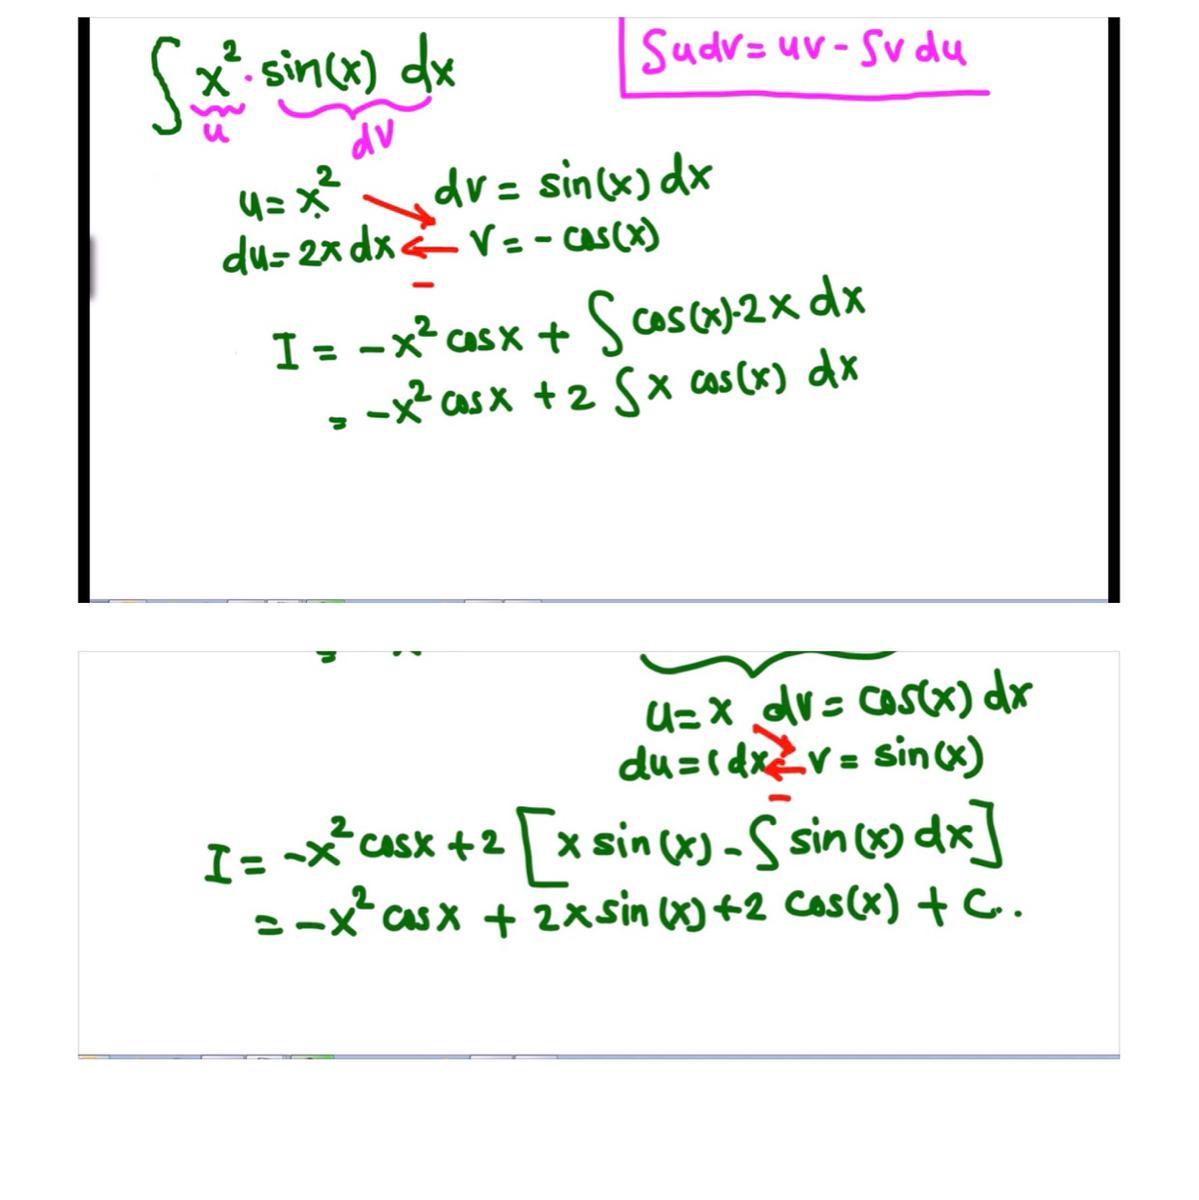 ∫ x². sin(x) dx
∫udv = uv - ∫v du
u
dv
u = x² dv = sin(x) dx
du = 2x dx v = - cos(x)
-
I = -x² cosx + ∫ cos(x).2x dx
= -x² cosx + 2 ∫ x cos(x) dx
u = x dv = cos(x) dx
du = 1 dx v = sin(x)
-
I = -x² cosx + 2 [x sin(x) - ∫ sin(x) dx]
= -x² cosx + 2x sin(x) + 2 cos(x) + C.